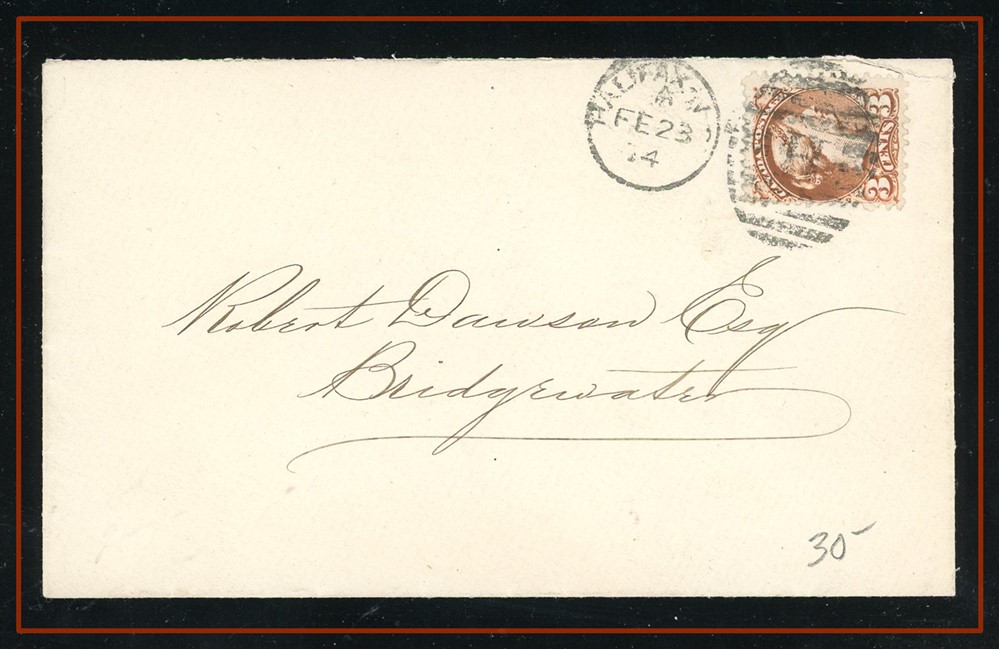 HALIFAX N
FE 23
74
3 CENTS 3
Robert Dawson Esq
Bridgewater
30